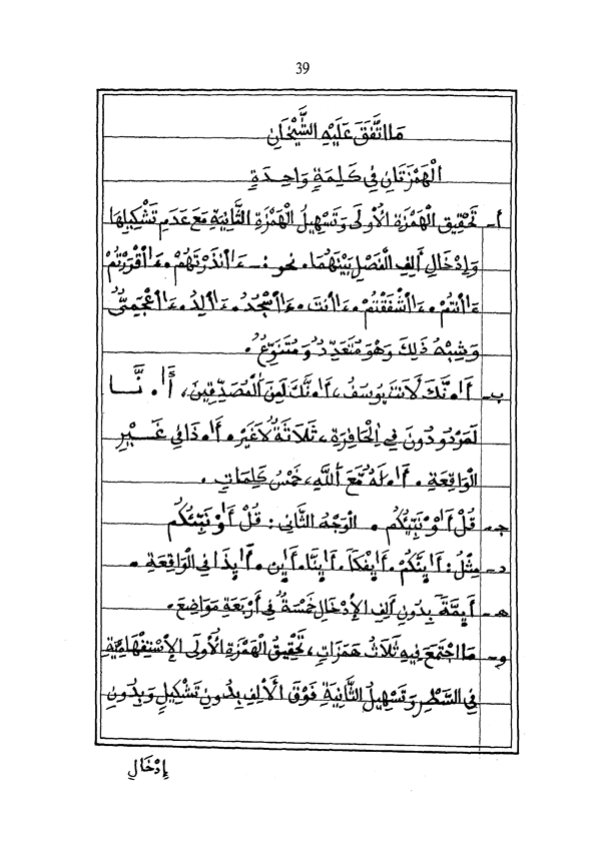 39
مَا اتَّفَقَ عَلَيْهِ الشَّيْخَانِ
الْهَمْزَتَانِ فِي كَلِمَةٍ وَاحِدَةٍ
أ - تَحْقِيقُ الْهَمْزَةِ الْأُولَى وَتَسْهِيلُ الْهَمْزَةِ الثَّانِيَةِ مَعَ عَدَمِ تَشْكِيلِهَا
وَإِدْخَالِ أَلِفِ الْفَصْلِ بَيْنَهُمَا. نحو: ءَاٰنذَرْتَهُمْ. ءَاٰقْرَرْتُمْ
ءَاٰنتُمْ. ءَاٰشْفَقْتُمْ. ءَاٰنتَ. ءَاٰسْجُدُ. ءَاٰلِدُ. ءَاٰعْجَمِيٌّ
وَشِبْهُ ذَلِكَ وَهُوَ مُتَعَدِّدٌ وَمُتَنَوِّعٌ.
ب - أَا۟نَّكَ لَأَنتَ يُوسُفُ، أَا۟نَّكَ لَمِنَ الْمُصَدِّقِينَ، أَا۟نَّا
لَمَرْدُودُونَ فِي الْحَافِرَةِ، ثَلَاثَةٌ لَاغَيْرُ. أَا۟ذَا فِي غَيْرِ
الْوَاقِعَةِ. أَا۟لَهٌ مَّعَ اللَّهِ، خَمْسُ كَلِمَاتٍ.
ج - قُلْ أَاؤُنَبِّئُكُم. الْوَجْهُ الثَّانِي: قُلْ أَاوْنَبِّئُكُم
د - مِثْلُ: أَاٮِٕنَّكُمْ. أَاٮِٕفْكاً. أَاٮِٕنَّا. أَاٮِٕن. أَاٮِٕذَا فِي الْوَاقِعَةِ.
ه - أَيِمَّةَ بِدُونِ أَلِفِ الْإِدْخَالِ خَمْسَةٌ فِي أَرْبَعَةِ مَوَاضِعَ.
و - مَا اجْتَمَعَ فِيهِ ثَلَاثُ هَمَزَاتٍ، تَحْقِيقُ الْهَمْزَةِ الْأُولَى الْإِسْتِفْهَامِيَّةِ
فِي السَّطْرِ وَتَسْهِيلُ الثَّانِيَةِ فَوْقَ الْأَلِفِ بِدُونِ تَشْكِيلٍ وَبِدُونِ
إِدْخَالٍ